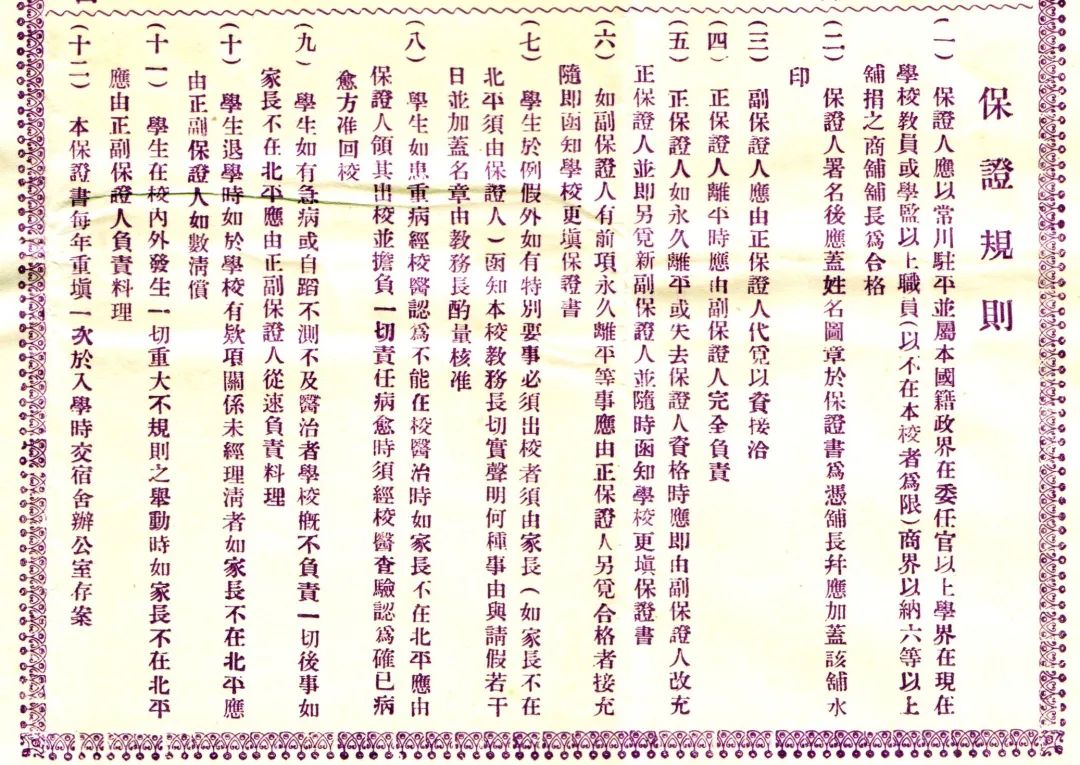 保證規則
(一) 保證人應以常川駐平並屬本國籍政界在委任官以上學界在現在
學校教員或學監以上職員(以不在本校者爲限)商界以納六等以上
舖捐之商舖舖長爲合格
(二) 保證人署名後應蓋姓名圖章於保證書爲憑舖長幷應加蓋該舖水
印
(三) 副保證人應由正保證人代覓以資接洽
(四) 正保證人離平時應由副保證人完全負責
(五) 正保證人如永久離平或失去保證人資格時應即由副保證人改充
正保證人並即另覓新副保證人並隨時函知學校更塡保證書
(六) 如副保證人有前項永久離平等事應由正保證人另覓合格者接充
隨即函知學校更塡保證書
(七) 學生於例假外如有特別要事必須出校者須由家長(如家長不在
北平須由保證人)函知本校教務長切實聲明何種事由與請假若干
日並加蓋名章由教務長酌量核准
(八) 學生如患重病經校醫認爲不能在校醫治時如家長不在北平應由
保證人領其出校並擔負一切責任病愈時須經校醫查驗認爲確已病
愈方准回校
(九) 學生如有急病或自蹈不測不及醫治者學校槪不負責一切後事如
家長不在北平應由正副保證人從速負責料理
(十) 學生退學時如於學校有欵項關係未經理淸者如家長不在北平應
由正副保證人如數淸償
(十一) 學生在校內外發生一切重大不規則之舉動時如家長不在北平
應由正副保證人負責料理
(十二) 本保證書每年重塡一次於入學時交宿舍辦公室存案